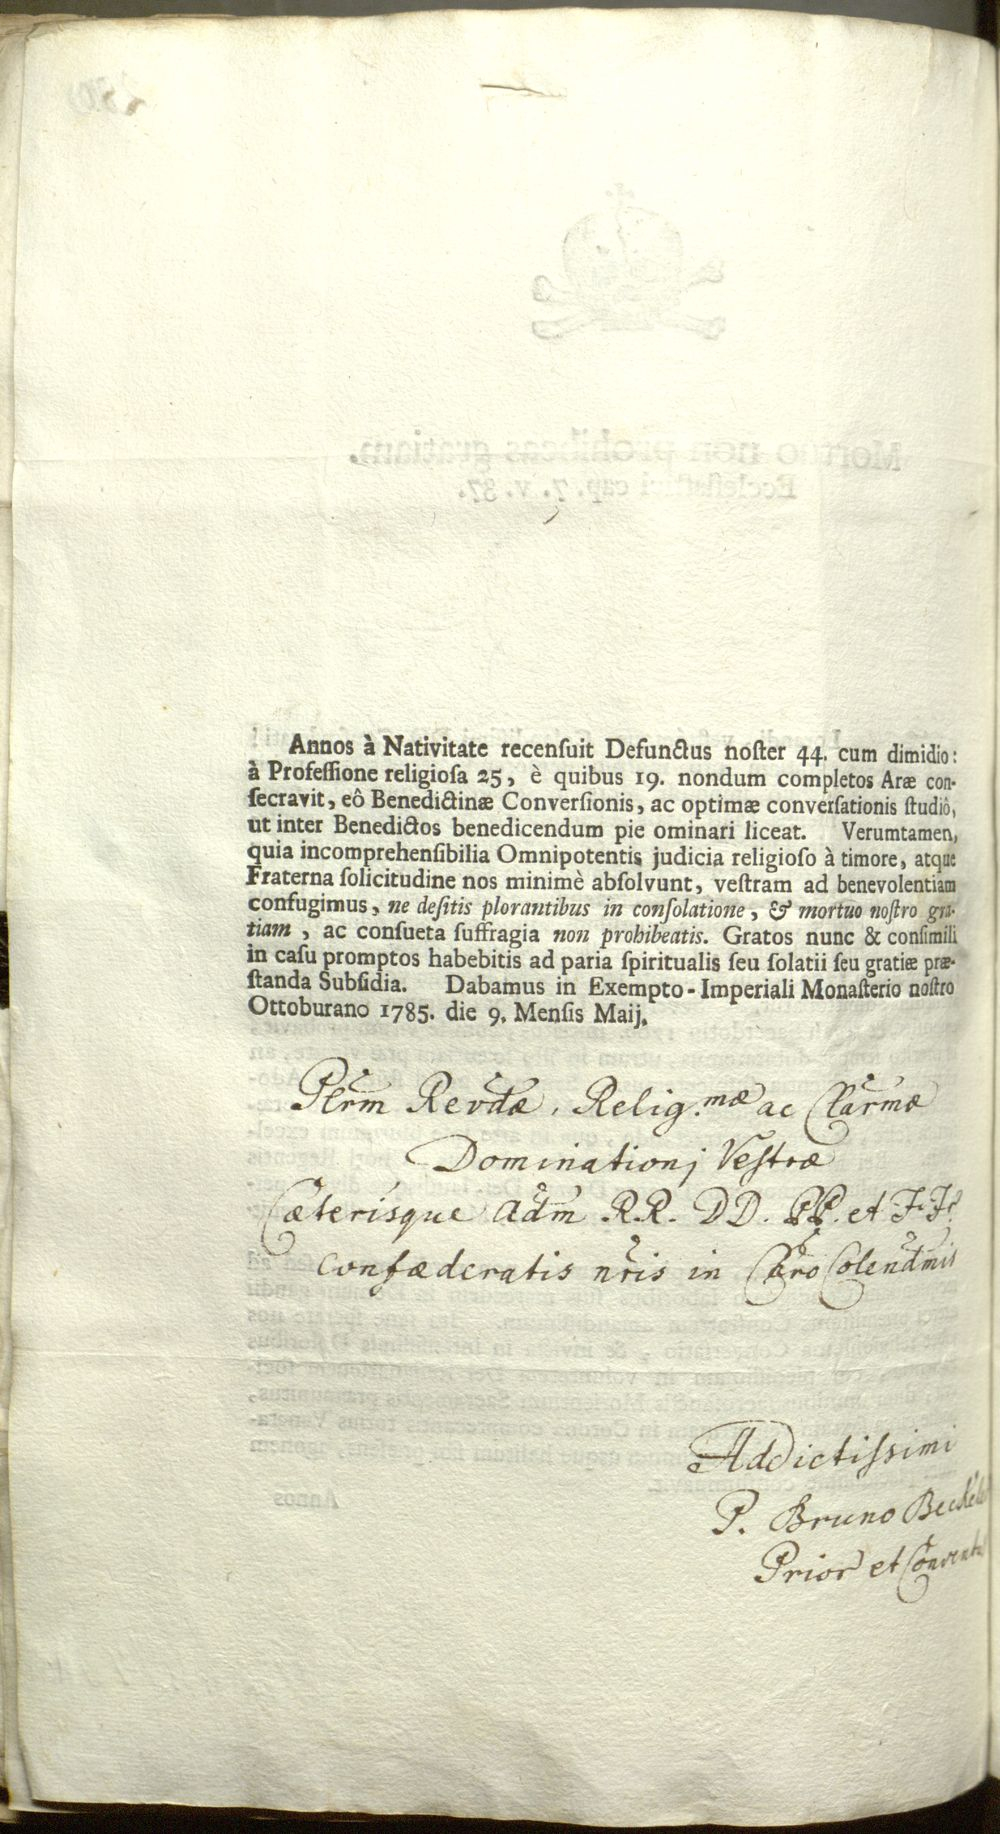 Annos à Nativitate recenſuit Defunctus noſter 44. cum dimidio:
à Profeſſione religioſa 25, è quibus 19. nondum completos Aræ con-
ſecravit, eô Benedictinæ Converſionis, ac optimæ converſationis ſtudiô,
ut inter Benedictos benedicendum pie ominari liceat. Verumtamen,
quia incomprehenſibilia Omnipotentis judicia religioſo à timore, atque
Fraterna ſolicitudine nos minimè abſolvunt, veſtram ad benevolentiam
confugimus, ne deſitis plorantibus in conſolatione, & mortuo noſtro gra-
tiam, ac conſueta ſuffragia non prohibeatis. Gratos nunc & conſimili
in caſu promptos habebitis ad paria ſpiritualis ſeu ſolatii ſeu gratiæ præ-
ſtanda Subſidia. Dabamus in Exempto-Imperiali Monaſterio noſtro
Ottoburano 1785. die 9. Menſis Maij.
Plrm Revdæ, Relig.mæ ac Clarmæ
Dominationj Veſtræ
Cæterisque adm .R.R. DD. PP. et F.F.
Confæderatis nris in Chro Colendmis
Addictiſsimi
P. Bruno
Prior et Conventus